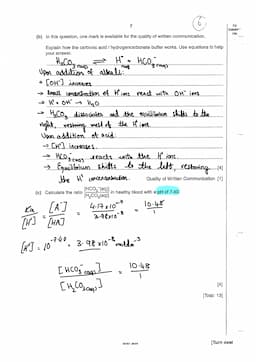 7
6
(b) In this question, one mark is available for the quality of written communication.
Explain how the carbonic acid / hydrogencarbonate buffer works. Use equations to help
your answer.
H₂CO₃(aq) ⇌ H⁺ + HCO₃⁻(aq)
Upon addition of alkali:
→ [OH⁻] increases
→ Small concentration of H⁺ ions react with OH⁻ ions
→ H⁺ + OH⁻ → H₂O
→ H₂CO₃ dissociates and the equilibrium shifts to the
right, restoring most of the H⁺ ions.
Upon addition of acid:
→ [H⁺] increases.
→ HCO₃⁻ reacts with the H⁺ ions.
→ Equilibrium shifts to the left, restoring [4]
the H⁺ concentration
Quality of Written Communication [1]
(c) Calculate the ratio [HCO₃⁻(aq)] / [H₂CO₃(aq)] in healthy blood with a pH of 7.40.
Ka / [H⁺] = [A⁻] / [HA] = 4.17×10⁻⁷ / 3.98×10⁻⁸ = 10.48 / 1
[H⁺] = 10⁻⁷·⁴⁰ = 3.98×10⁻⁸ mol dm⁻³
[HCO₃⁻(aq)] / [H₂CO₃(aq)] = 10.48 / 1
[Total: 13]
[Turn over